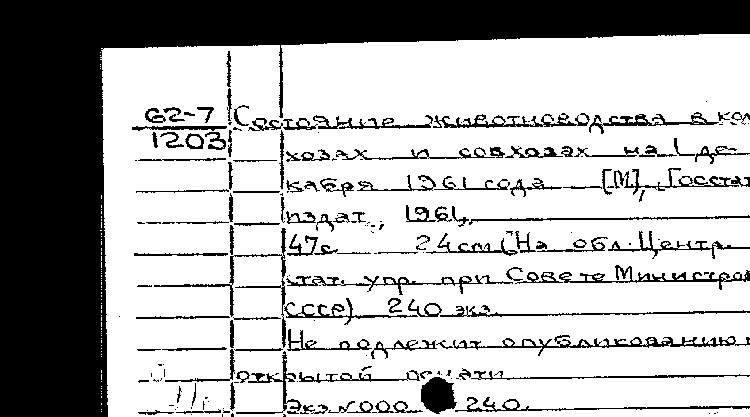 62-7 Состояние животноводства в кол
1203
хозах и совхозах на 1 де-
кабря 1961 года [М], Госстат
издат, 1961,
47с 24 cm (На обл. Центр.
стат. упр. при Совете Министров
СССР) 240 экз.
Не подлежит опубликованию в
открытой печати
Экз. N 000 240.